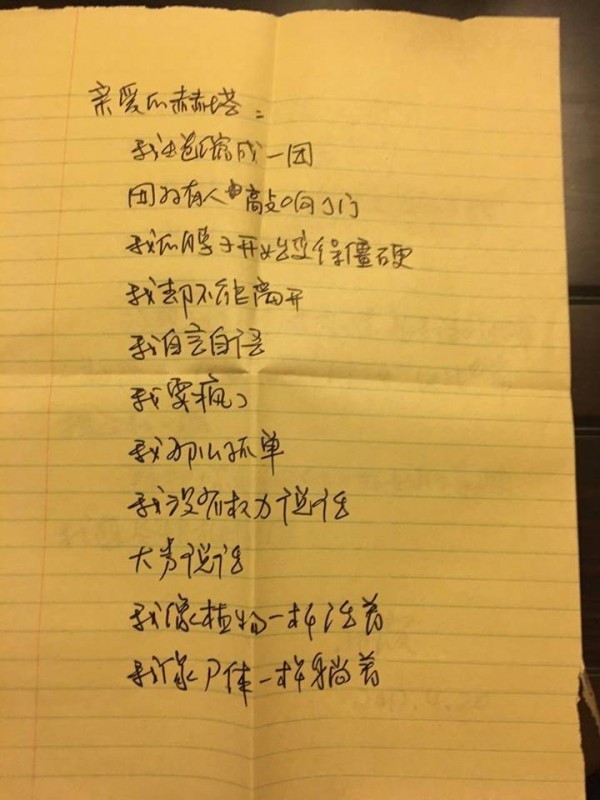 亲爱的赫塔：
我缩成一团
因为有人敲响了门
我的脖子开始变得僵硬
我却不能离开
我自言自语
我要疯了
我那么孤单
我没有权力说话
大声说话
我像植物一样活着
我像尸体一样躺着